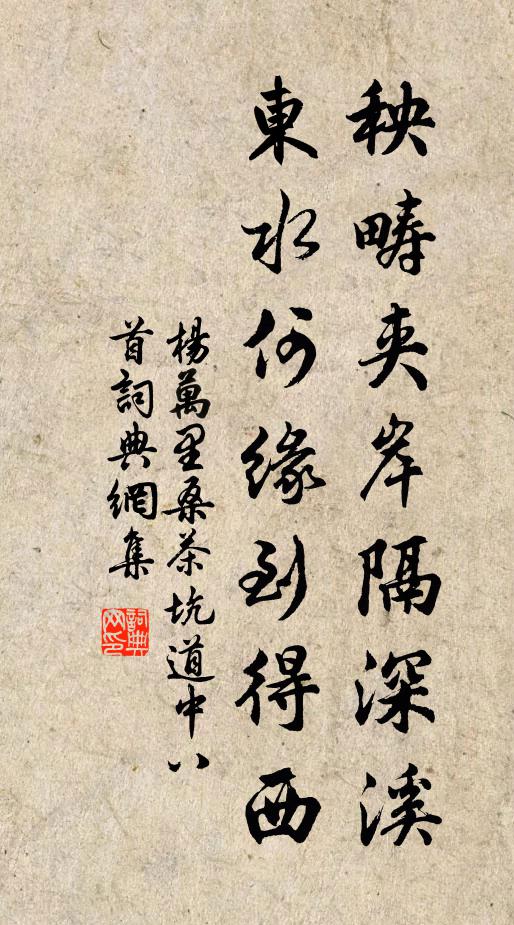 秧疇夾岸隔深溪
東水何緣到得西
楊萬里桑茶坑道中八
首詞典網集
詞典网印